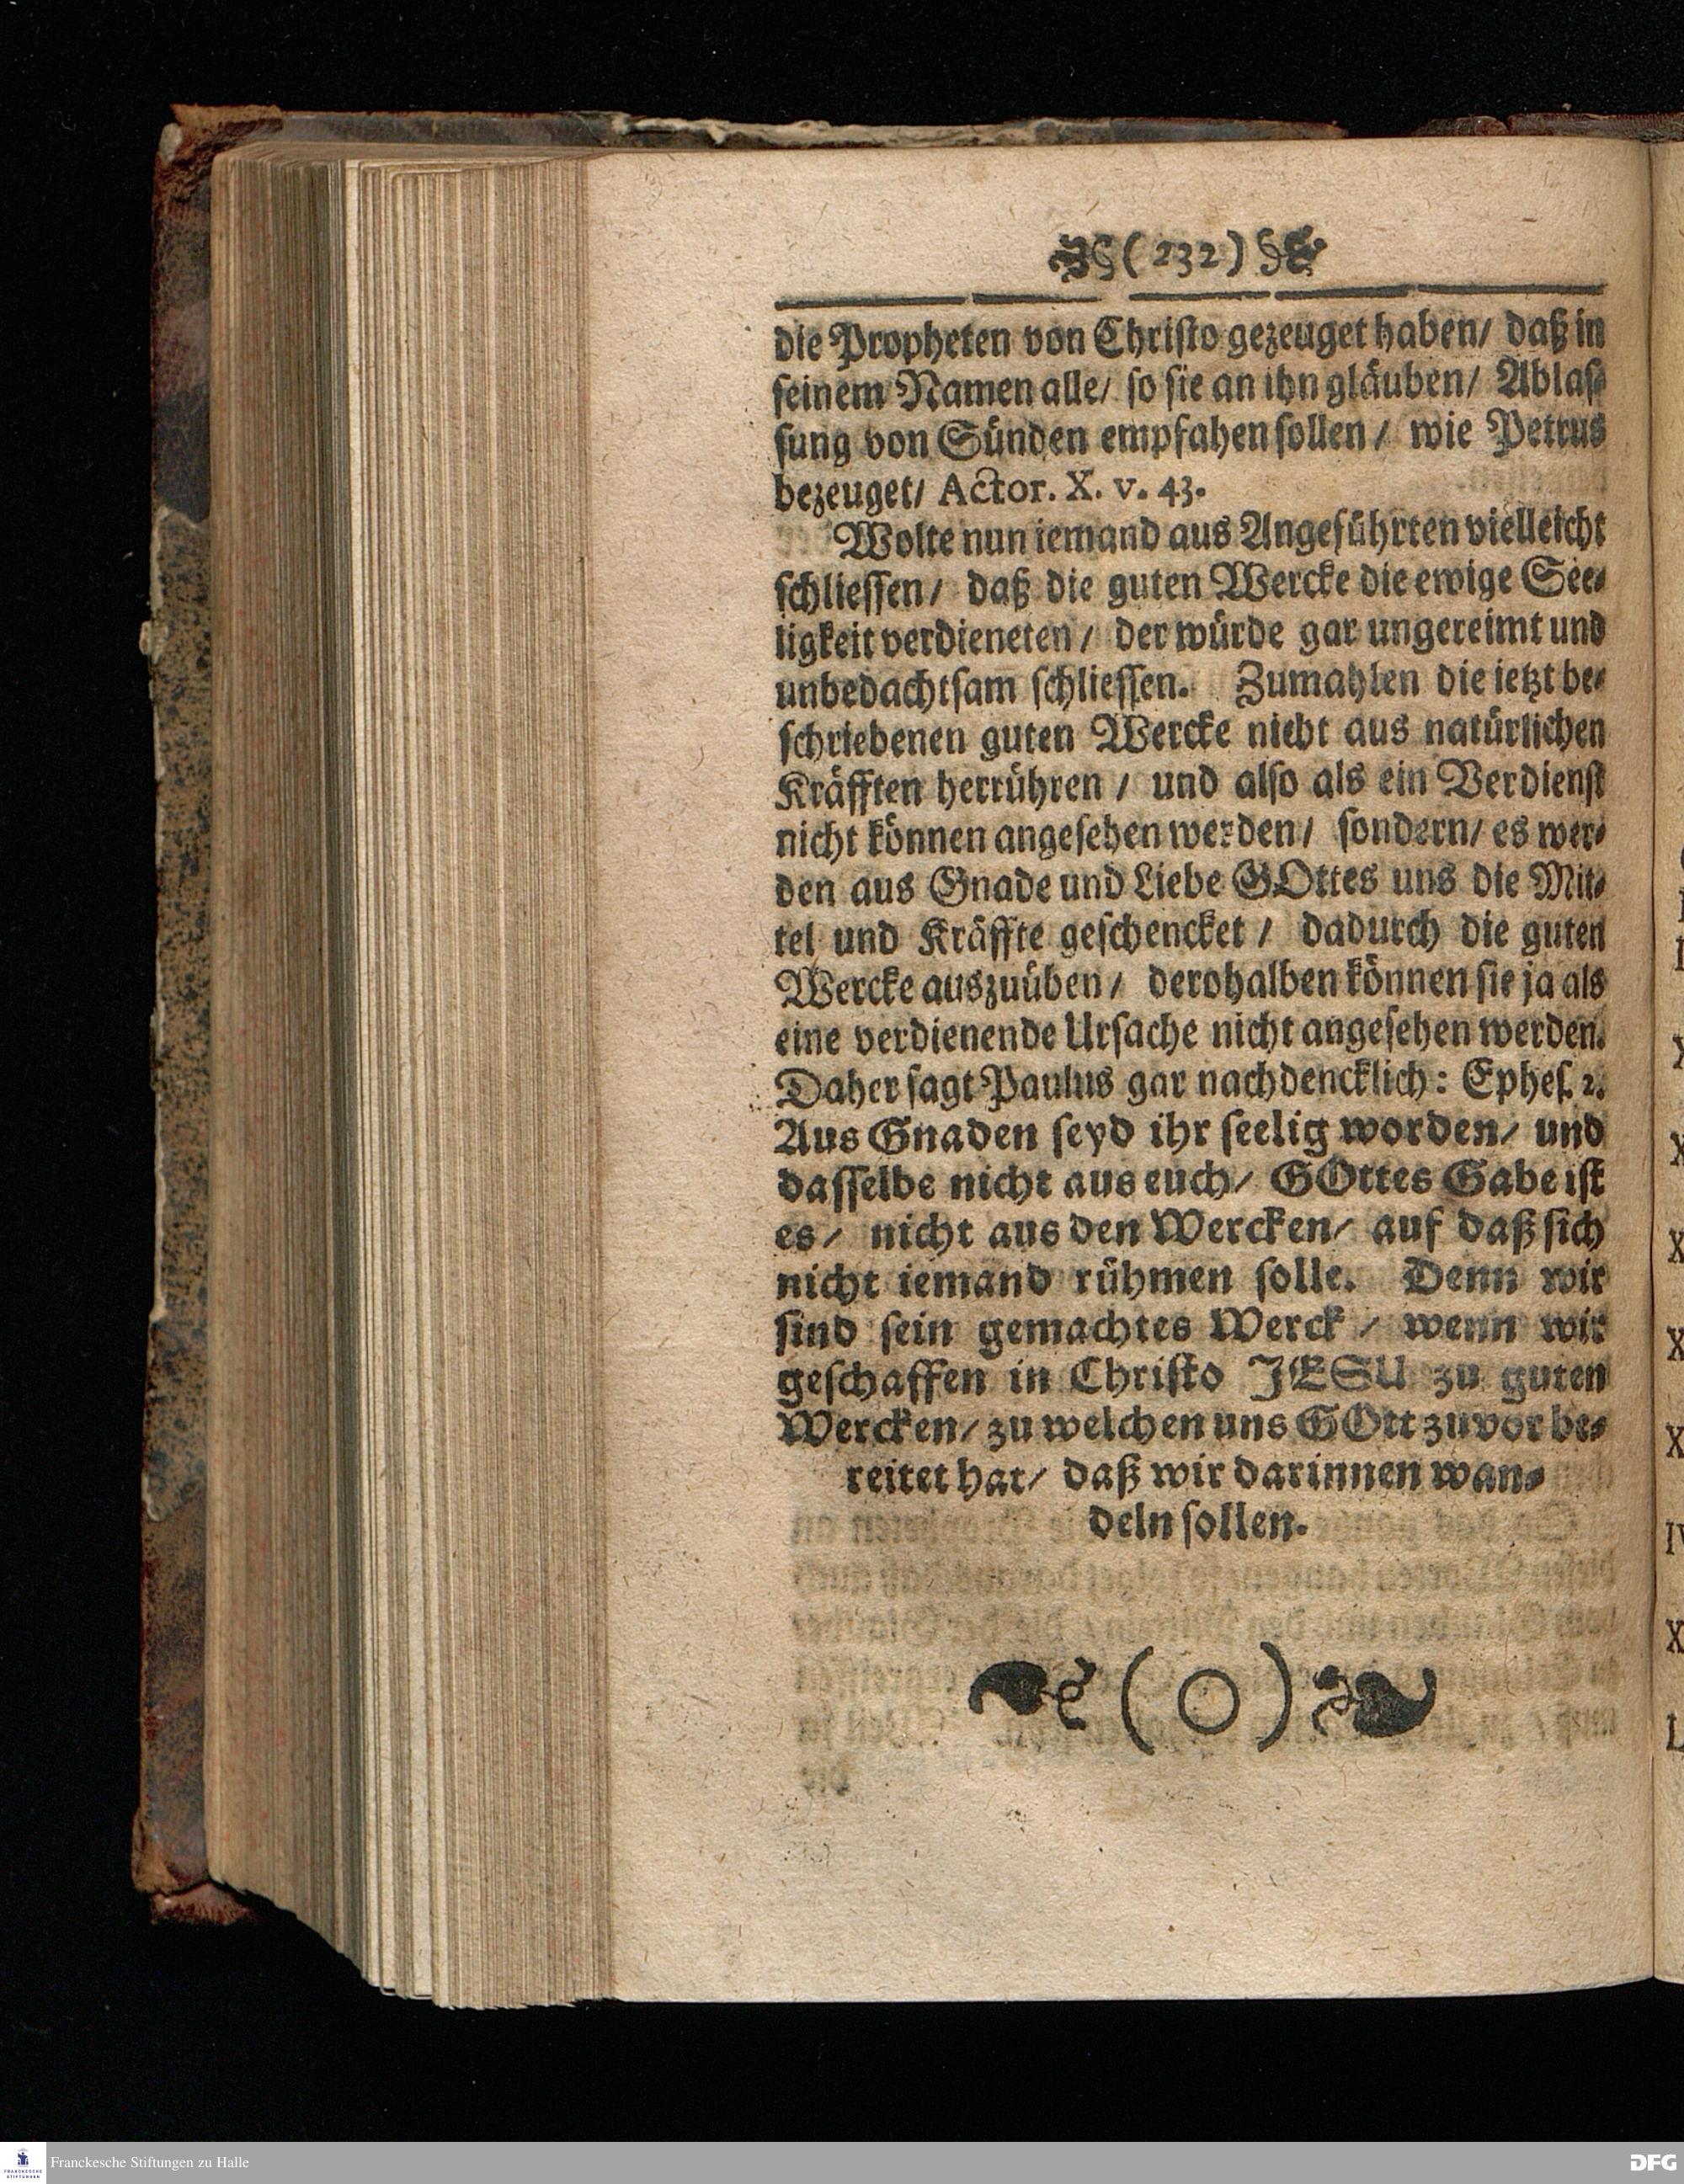 ( 232 )
die Propheten von Chriſto gezeuget haben/ daß in
ſeinem Namen alle/ ſo ſie an ihn gläuben/ Ablaſ⸗
ſung von Sünden empfahen ſollen / wie Petrus
bezeuget/ Actor. X. v. 43.
Wolte nun iemand aus Angeführten vielleicht
ſchlieſſen / daß die guten Wercke die ewige See⸗
ligkeit verdieneten / der würde gar ungereimt und
unbedachtſam ſchlieſſen. Zumahlen die ietzt be⸗
ſchriebenen guten Wercke nicht aus natürlichen
Kräfften herrühren / und alſo als ein Verdienſt
nicht können angeſehen werden/ ſondern/ es wer⸗
den aus Gnade und Liebe GOttes uns die Mit⸗
tel und Kräffte geſchencket / dadurch die guten
Wercke auszuüben / derohalben können ſie ja als
eine verdienende Urſache nicht angeſehen werden.
Daher ſagt Paulus gar nachdencklich: Epheſ. 2.
Aus Gnaden ſeyd ihr ſeelig worden/ und
daſſelbe nicht aus euch/ GOttes Gabe iſt
es / nicht aus den Wercken/ auf daß ſich
nicht iemand rühmen ſolle. Denn wir
ſind ſein gemachtes Werck / wenn wir
geſchaffen in Chriſto JESU zu guten
Wercken/ zu welchen uns GOtt zuvor be⸗
reitet hat/ daß wir darinnen wan⸗
deln ſollen.
( O )
Franckesche Stiftungen zu Halle
FRANCKESCHE
STIFTUNGEN
DFG